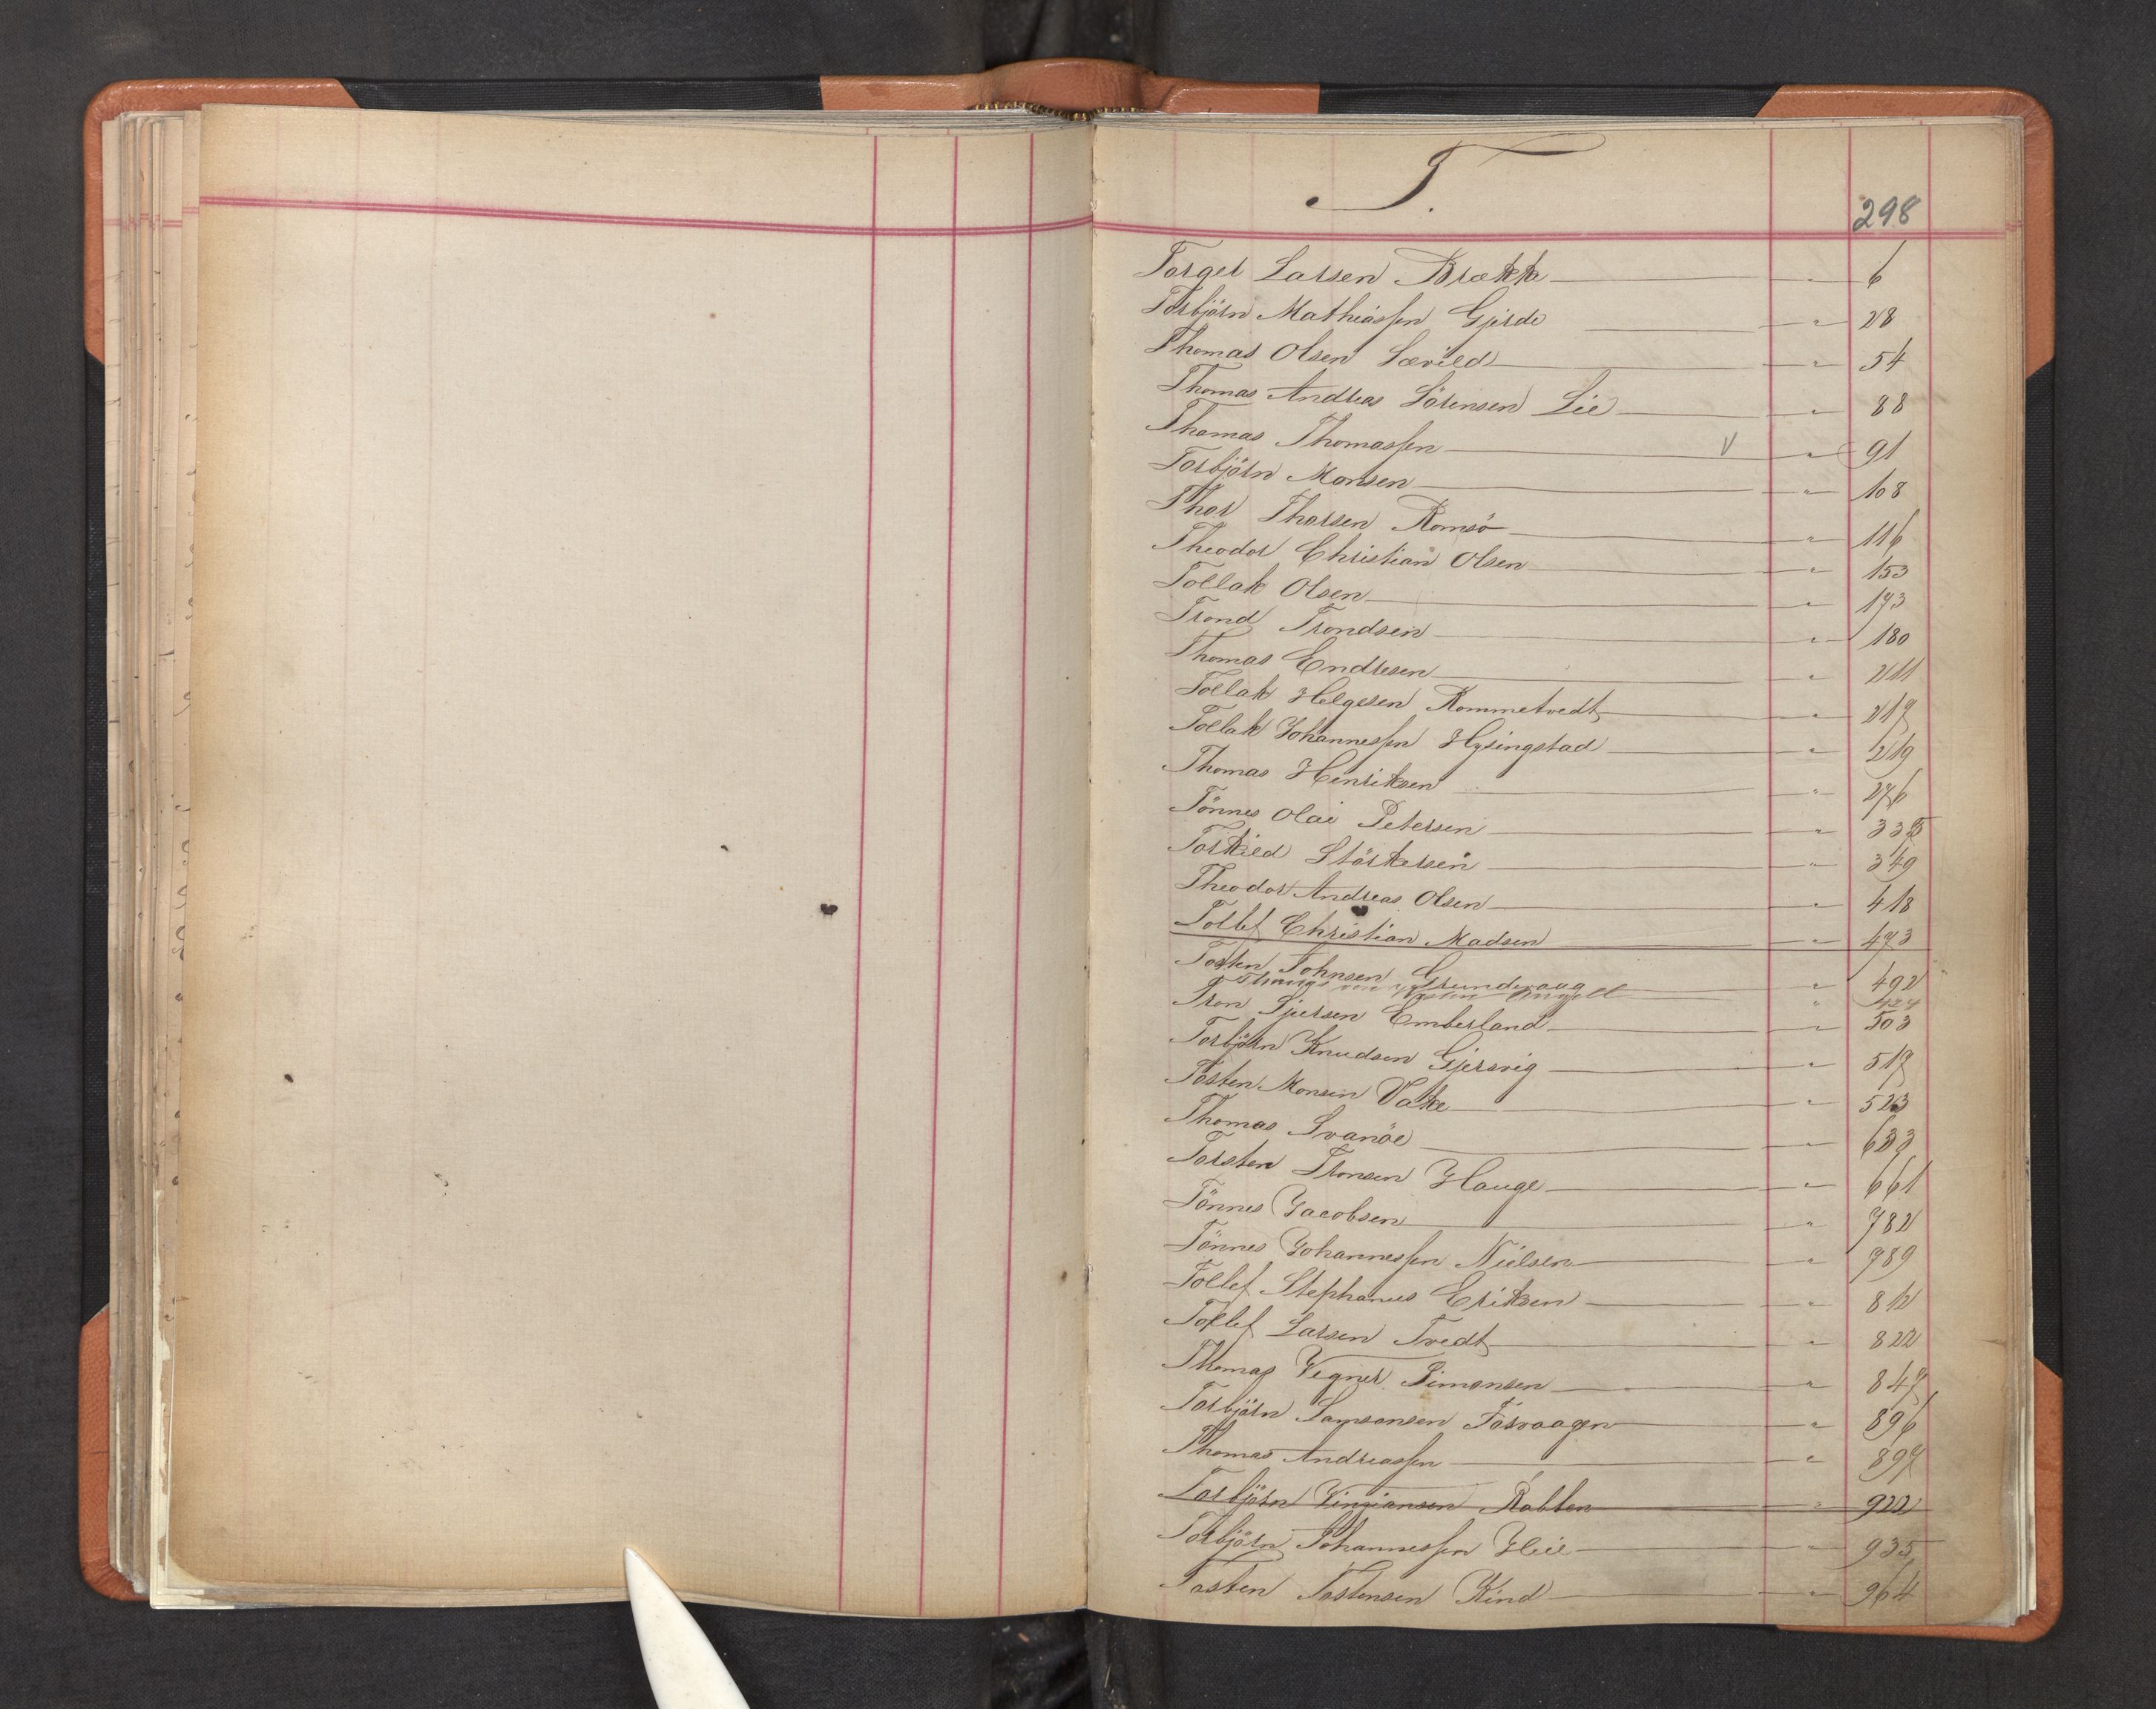 T.
298
Torger Larsen Brække " 6
Torbjörn Mathiassen Gjerde " 28
Thomas Olsen Sævild " 54
Thomas Andreas Sörensen Lie " 88
Thomas Thomassen V " 91
Torbjörn Monsen " 108
Thor Thorsen Romsö " 116
Theodor Christian Olsen " 153
Tollak Olsen " 173
Trond Trondsen " 180
Thomas Endresen " 211
Tollak Helgesen Rommetvedt " 217
Tollak Johannessen Hysingstad " 219
Thomas Henriksen " 276
Tönnes Olai Petersen " 335
Torkild Störkersen " 349
Theodor Andreas Olsen " 418
Tollef Christian Madsen " 473
Tosten Johnsen Grundevaag " 492
Thomas von Westen Engell "
Tron Sjursen Emberland " 503
Torbjörn Knudsen Gjersvig " 517
Tosten Monsen Vake " 523
Thomas Svanöe " 633
Torsten Tronsen Hauge " 661
Tönnes Jacobsen " 782
Tönnes Johannessen Nielsen " 789
Tollef Stephanus Eriksen " 812
Tollef Larsen Tvedt " 822
Thomas Vegner Simonsen " 847
Torbjörn Samsonsen Fosvaagen " 896
Thomas Andreassen " 897
Torbjörn Rabben " 922
Torbjörn Johannessen Hlie " 935
Tosten Tostensen Kind " 964